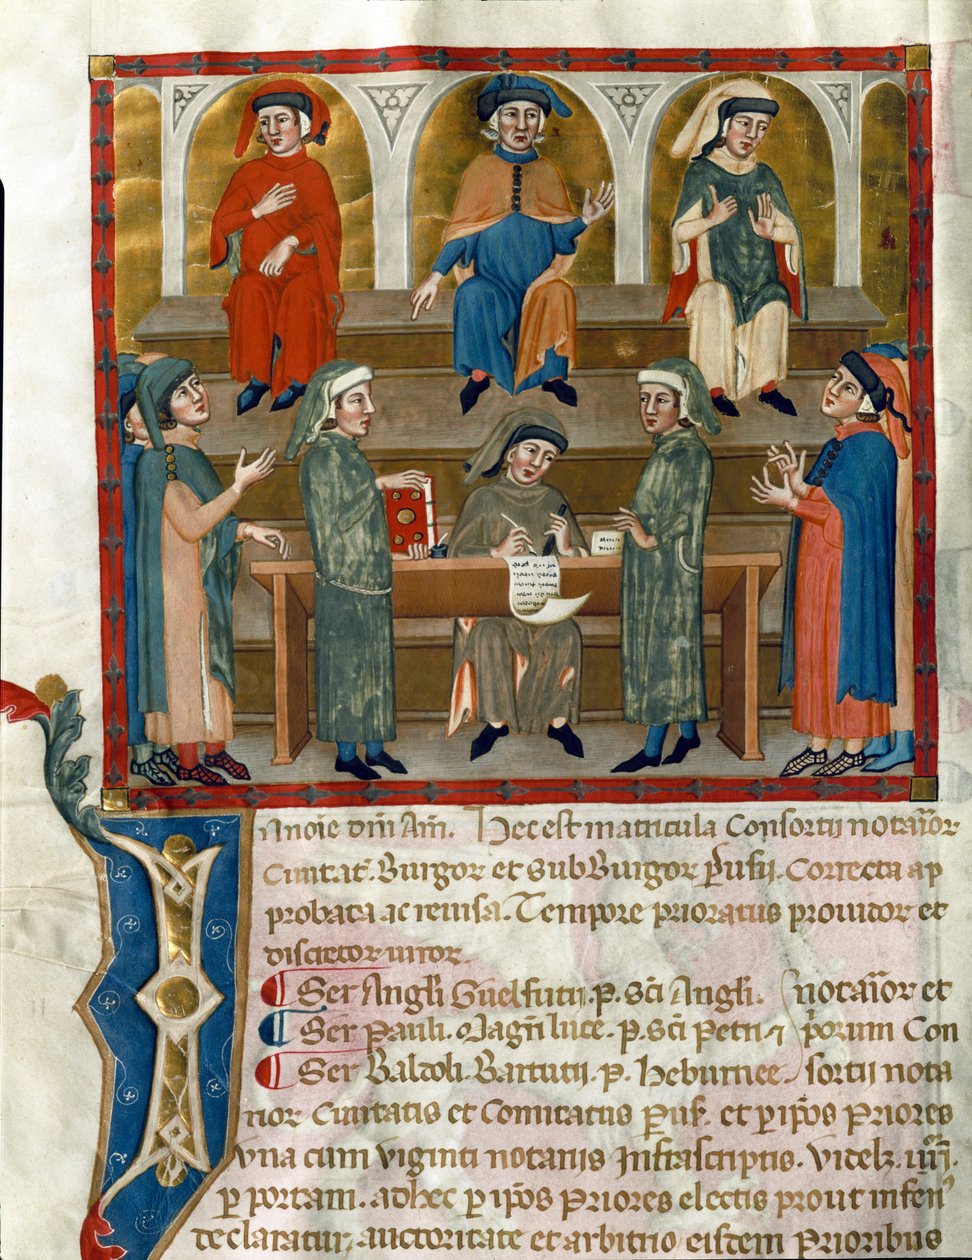 In noīe dn̄i Am̄. Hec est matricula Consortij notaȷ̄or
Ciuitat̄. Burgor et subBurgor Perusij. Correcta ap
probata ac reuisa. Tempore prioratus prouidor et
discretor uiror
Ser Angl̄i Guelfutij. p. sc̄i Angl̄i. notaȷ̄or et
Ser Pauli. Magr̄i luce. p. sc̄i Petri priorum Con
Ser Baldoli. Bartutij. p. heburnee sortij nota
rior Ciuitatis et Comitatus Perus. et per ip̄os Priores
Vna cum viginti notariis Infrascriptis. Videlz. iiijor.
per portam. adhec per ip̄os Priores electis prout inferi'
declaratur, auctoritate et arbitrio eisdem Prioribus